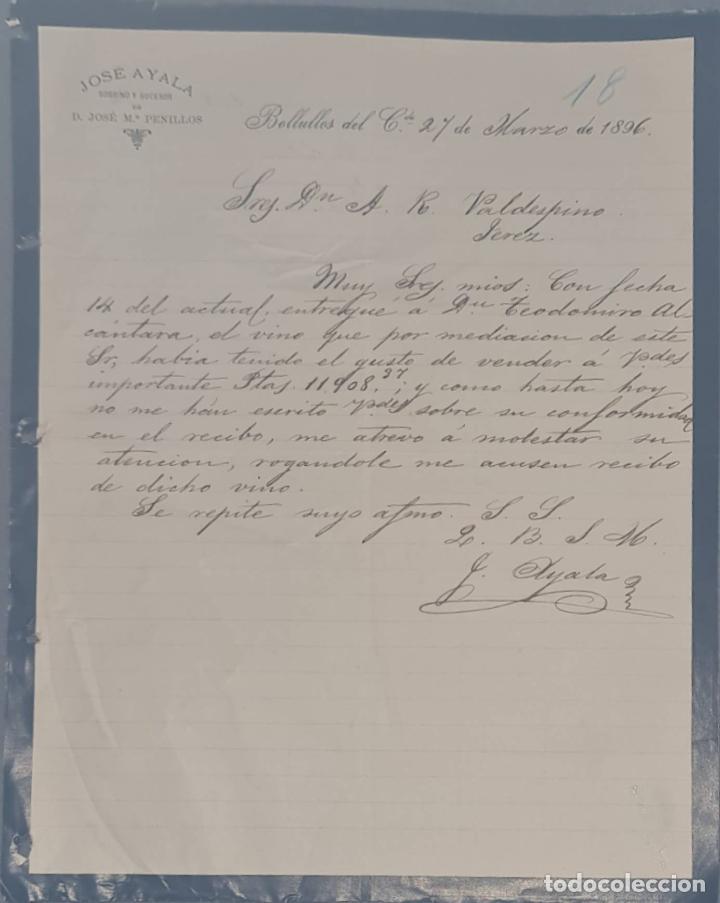 JOSE AYALA
SOBRINO Y SUCESOR
DE
D. JOSÉ M.ª PENILLOS
18
Bollullos del C.do 27 de Marzo de 1896.
Sres. Dn A. R. Valdespino.
Jerez.
Muy Sres. mios: Con fecha
14 del actual, entregué á Dn Teodomiro Al-
cántara, el vino que por mediacion de este
Sr, habia tenido el gusto de vender á Vdes
importante Ptas. 11.908,37; y como hasta hoy
no me hán escrito Vdes sobre su conformidad
en el recibo, me atrevo á molestar su
atencion, rogandole me acusen recibo
de dicho vino.
Se repite suyo afmo. S. S.
Q. B. S. M.
J. Ayala
todocoleccion